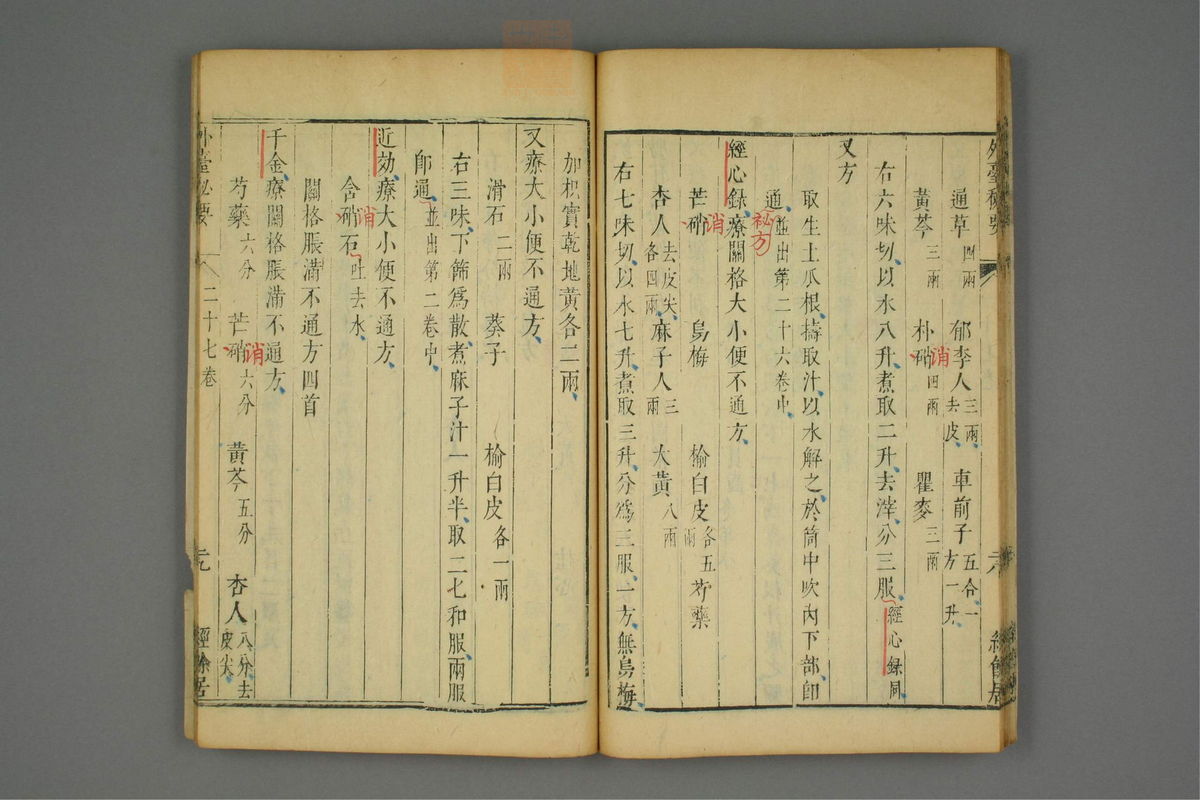 通草四兩 郁李人三兩去皮 車前子五合一方一升
黃芩三兩 朴硝消四兩 瞿麥三兩
右六味切以水八升煮取二升去滓分三服經心録同
又方
取生土瓜根擣取汁以水解之於筒中吹內下部卽
通並出第二十六卷中
祕方
經心録療關格大小便不通方
芒硝消 烏梅 榆白皮各五兩 芍藥
杏人去皮尖各四兩 麻子人三兩 大黃八兩
右七味切以水七升煮取三升分爲三服一方無烏梅
加枳實乾地黃各二兩
又療大小便不通方
滑石二兩 葵子 榆白皮各一兩
右三味下篩爲散煮麻子汁一升半取二七和服兩服
卽通並出第二卷中
近効療大小便不通方
含硝消石吐去水
關格脹滿不通方四首
千金療關格脹滿不通方
芍藥六分 芒硝消六分 黃芩五分 杏人八分去皮尖
外臺祕要 二十七卷 經餘居